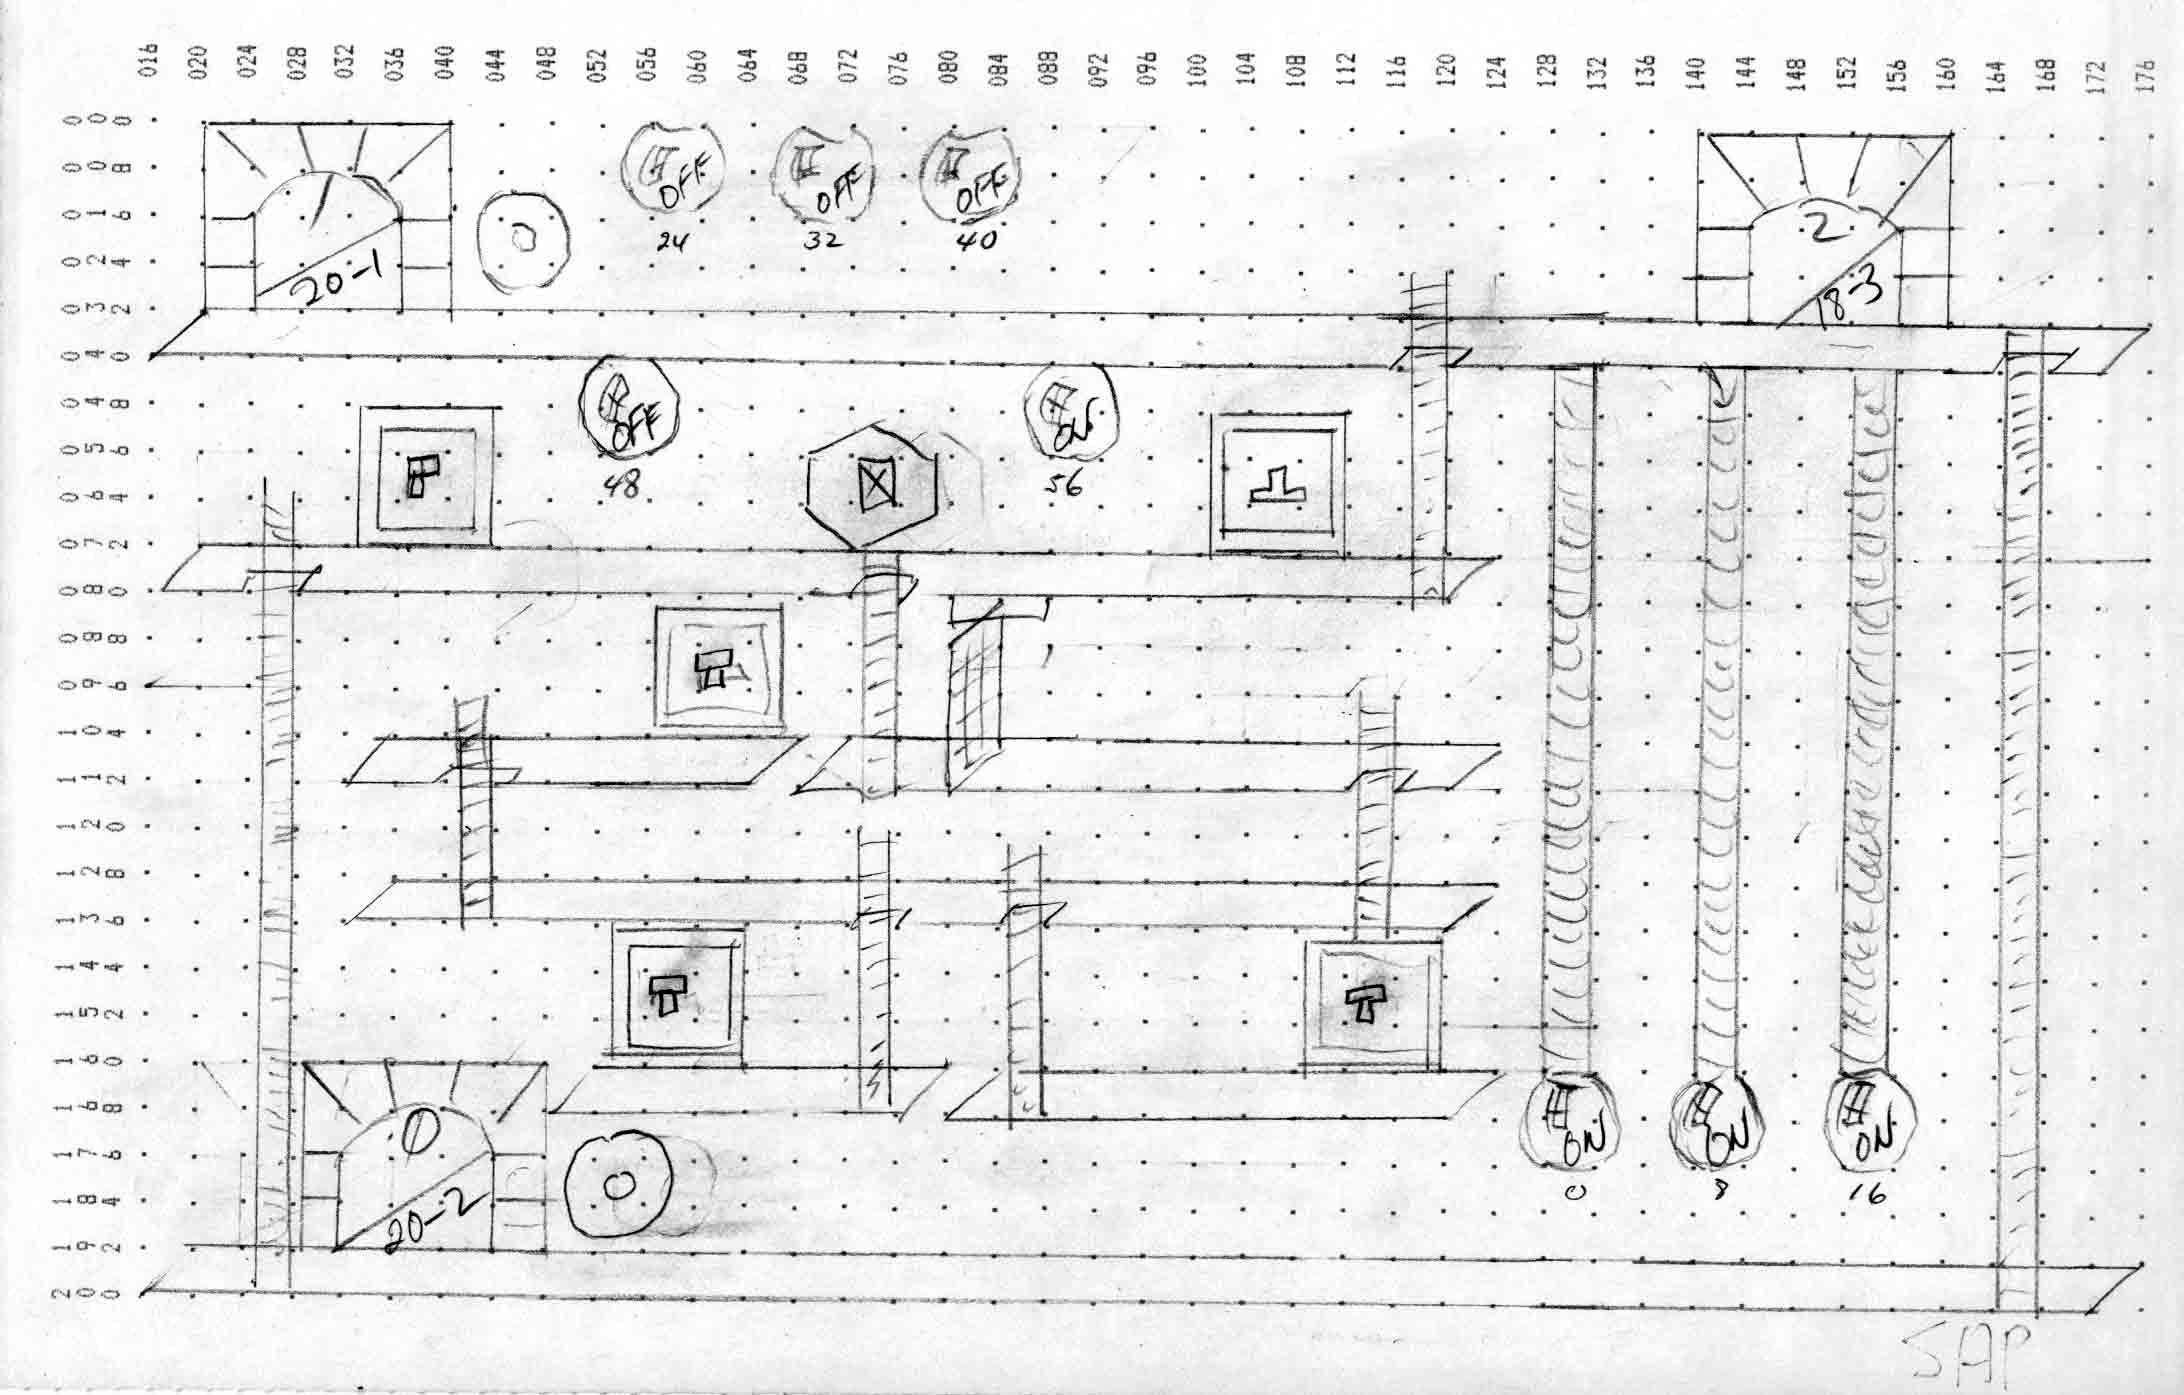 016 020 024 028 032 036 040 044 048 052 056 060 064 068 072 076 080 084 088 092 096 100 104 108 112 116 120 124 128 132 136 140 144 148 152 156 160 164 168 172 176
000
008
016
024
032
040
048
056
064
072
080
088
096
104
112
120
128
136
144
152
160
168
176
184
192
200
OFF OFF OFF
24 32 40
0
1
20-1
2
18-3
OFF ON
48 56
0
20-2
0
ON ON ON
0 8 16
SAP